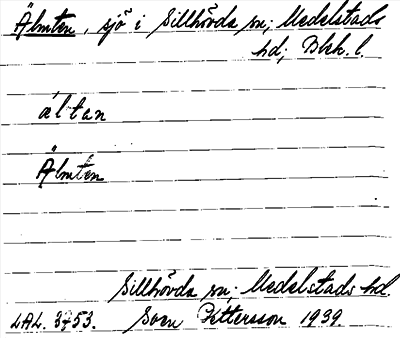 Älmten, sjö i Sillhövda sn; Medelstads
hd; Blek. l.
æ´ltan
Älmten
Sillhövda sn; Medelstads hd.
LAL. 3753. Sven Pettersson 1939.